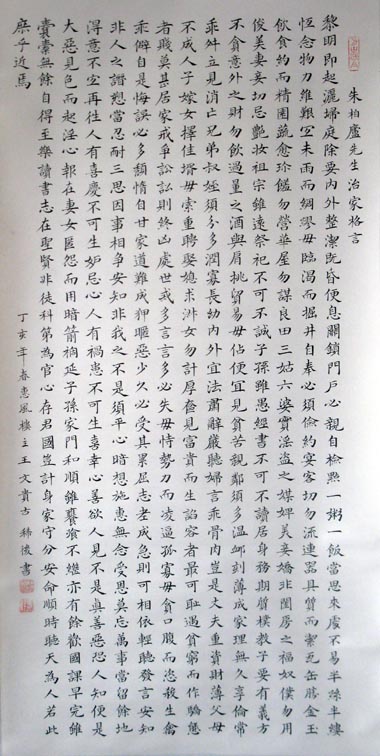 朱柏廬先生治家格言
黎明即起灑掃庭除要內外整潔既昏便息關鎖門戶必親自檢點一粥一飯當思來處不易半絲半縷
恆念物力維艱宜未雨而綢繆毋臨渴而掘井自奉必須儉約宴客切勿流連器具質而潔瓦缶勝金玉
飲食約而精園蔬愈珍饈勿營華屋勿謀良田三姑六婆實淫盜之媒婢美妾嬌非閨房之福奴僕勿用
俊美妻妾切忌艷妝祖宗雖遠祭祀不可不誠子孫雖愚經書不可不讀居身務期質樸教子要有義方
不貪意外之財勿飲過量之酒與肩挑貿易毋佔便宜見貧苦親鄰須多溫卹刻薄成家理無久享倫常
乖舛立見消亡兄弟叔姪須分多潤寡長幼內外宜法肅辭嚴聽婦言乖骨肉豈是丈夫重資財薄父母
不成人子嫁女擇佳婿毋索重聘娶媳求淑女勿計厚奩見富貴而生諂容者最可恥遇貧窮而作驕態
者賤莫甚居家戒爭訟訟則終凶處世戒多言言多必失毋恃勢力而凌逼孤寡毋貪口腹而恣殺生禽
乖僻自是悔誤必多頹惰自甘家道難成狎暱惡少久必受其累屈志老成急則可相依輕聽發言安知
非人之譖愬當忍耐三思因事相爭安知非我之不是須平心暗想施惠無念受恩莫忘萬事當留餘地
得意不宜再往人有喜慶不可生妒忌心人有禍患不可生喜幸心善欲人見不是真善惡恐人知便是
大惡見色而起淫心報在妻女匿怨而用暗箭禍延子孫家門和順雖饔飧不繼亦有餘歡國課早完雖
囊橐無餘自得至樂讀書志在聖賢非徒科第為官心存君國豈計身家守分安命順時聽天為人若此
庶乎近焉
丁亥年春惠風樓主王文貴古稀後書